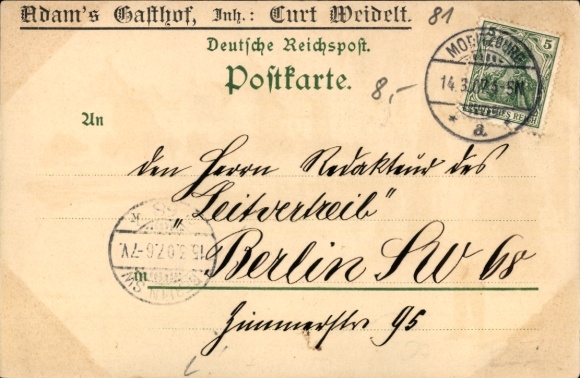 Adam's Gasthof, Inh.: Curt Weidelt.
81
Deutsche Reichspost.
Postkarte.
8,-
5
MORITZBURG
14.3.07. 5-6N
* a. *
An
den Herrn Redakteur des
"Zeitvertreib"
15.3.07. 6-7V.
In Berlin SW 68
Zimmerstr 95